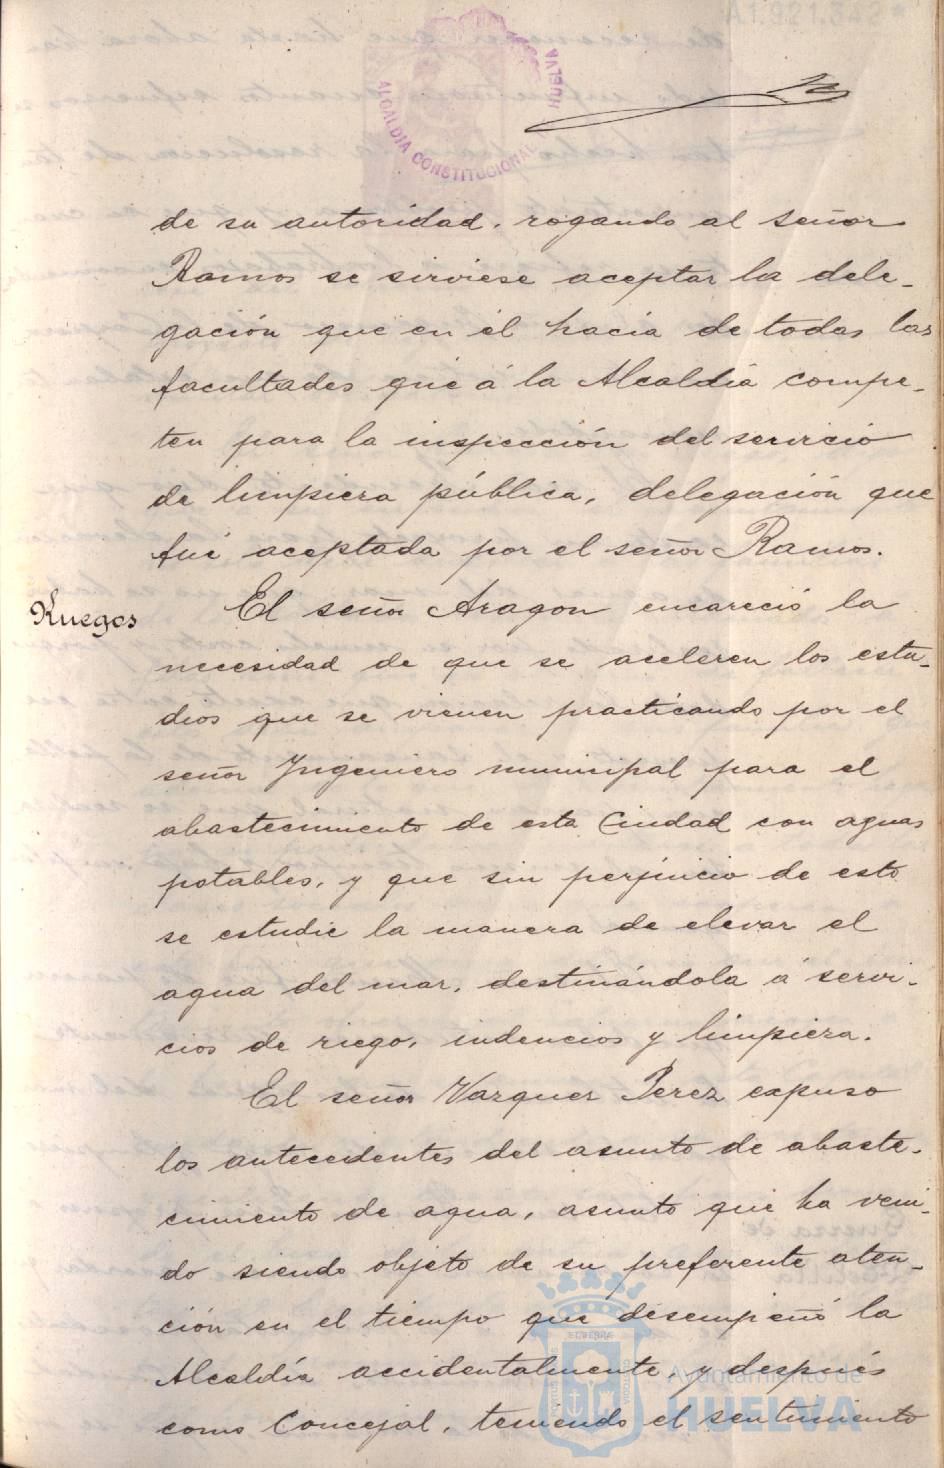 A1.921.342
ALCALDIA CONSTITUCIONAL
HUELVA
de su autoridad, rogando al señor
Ramos se sirviese aceptar la dele-
gación que en él hacia de todas las
facultades que á la Alcaldía compe-
ten para la inspección del servicio
de limpieza pública, delegación que
fué aceptada por el señor Ramos.
Ruegos
El señor Aragon encareció la
necesidad de que se aceleren los estu-
dios que se vienen practicando por el
señor Ingeniero municipal para el
abastecimiento de esta Ciudad con aguas
potables, y que sin perjuicio de esto
se estudie la manera de elevar el
agua del mar, destinándola á servi-
cios de riego, indencios y limpieza.
El señor Vazquez Perez expuso
los antecedentes del asunto de abaste-
cimiento de agua, asunto que ha veni-
do siendo objeto de su preferente aten-
ción en el tiempo que desempeñó la
Alcaldía accidentalmente, y después
como Concejal, teniendo el sentimiento
Ayuntamiento de
HUELVA